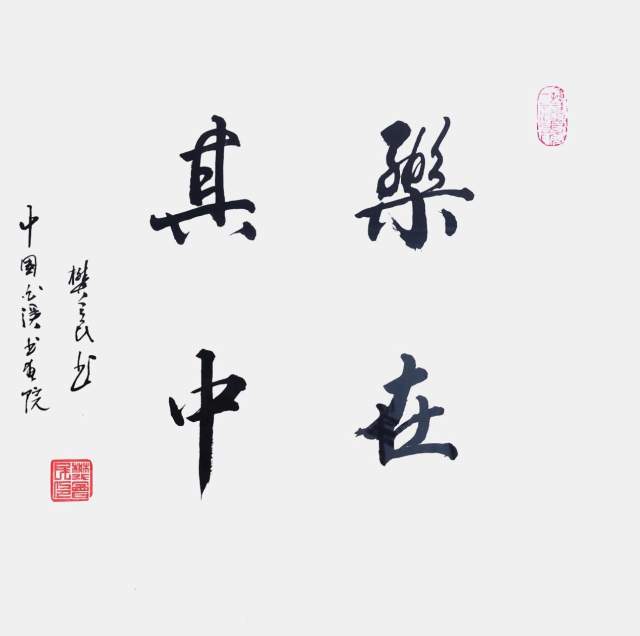 樂在
其中
樊立民书
中国书画院